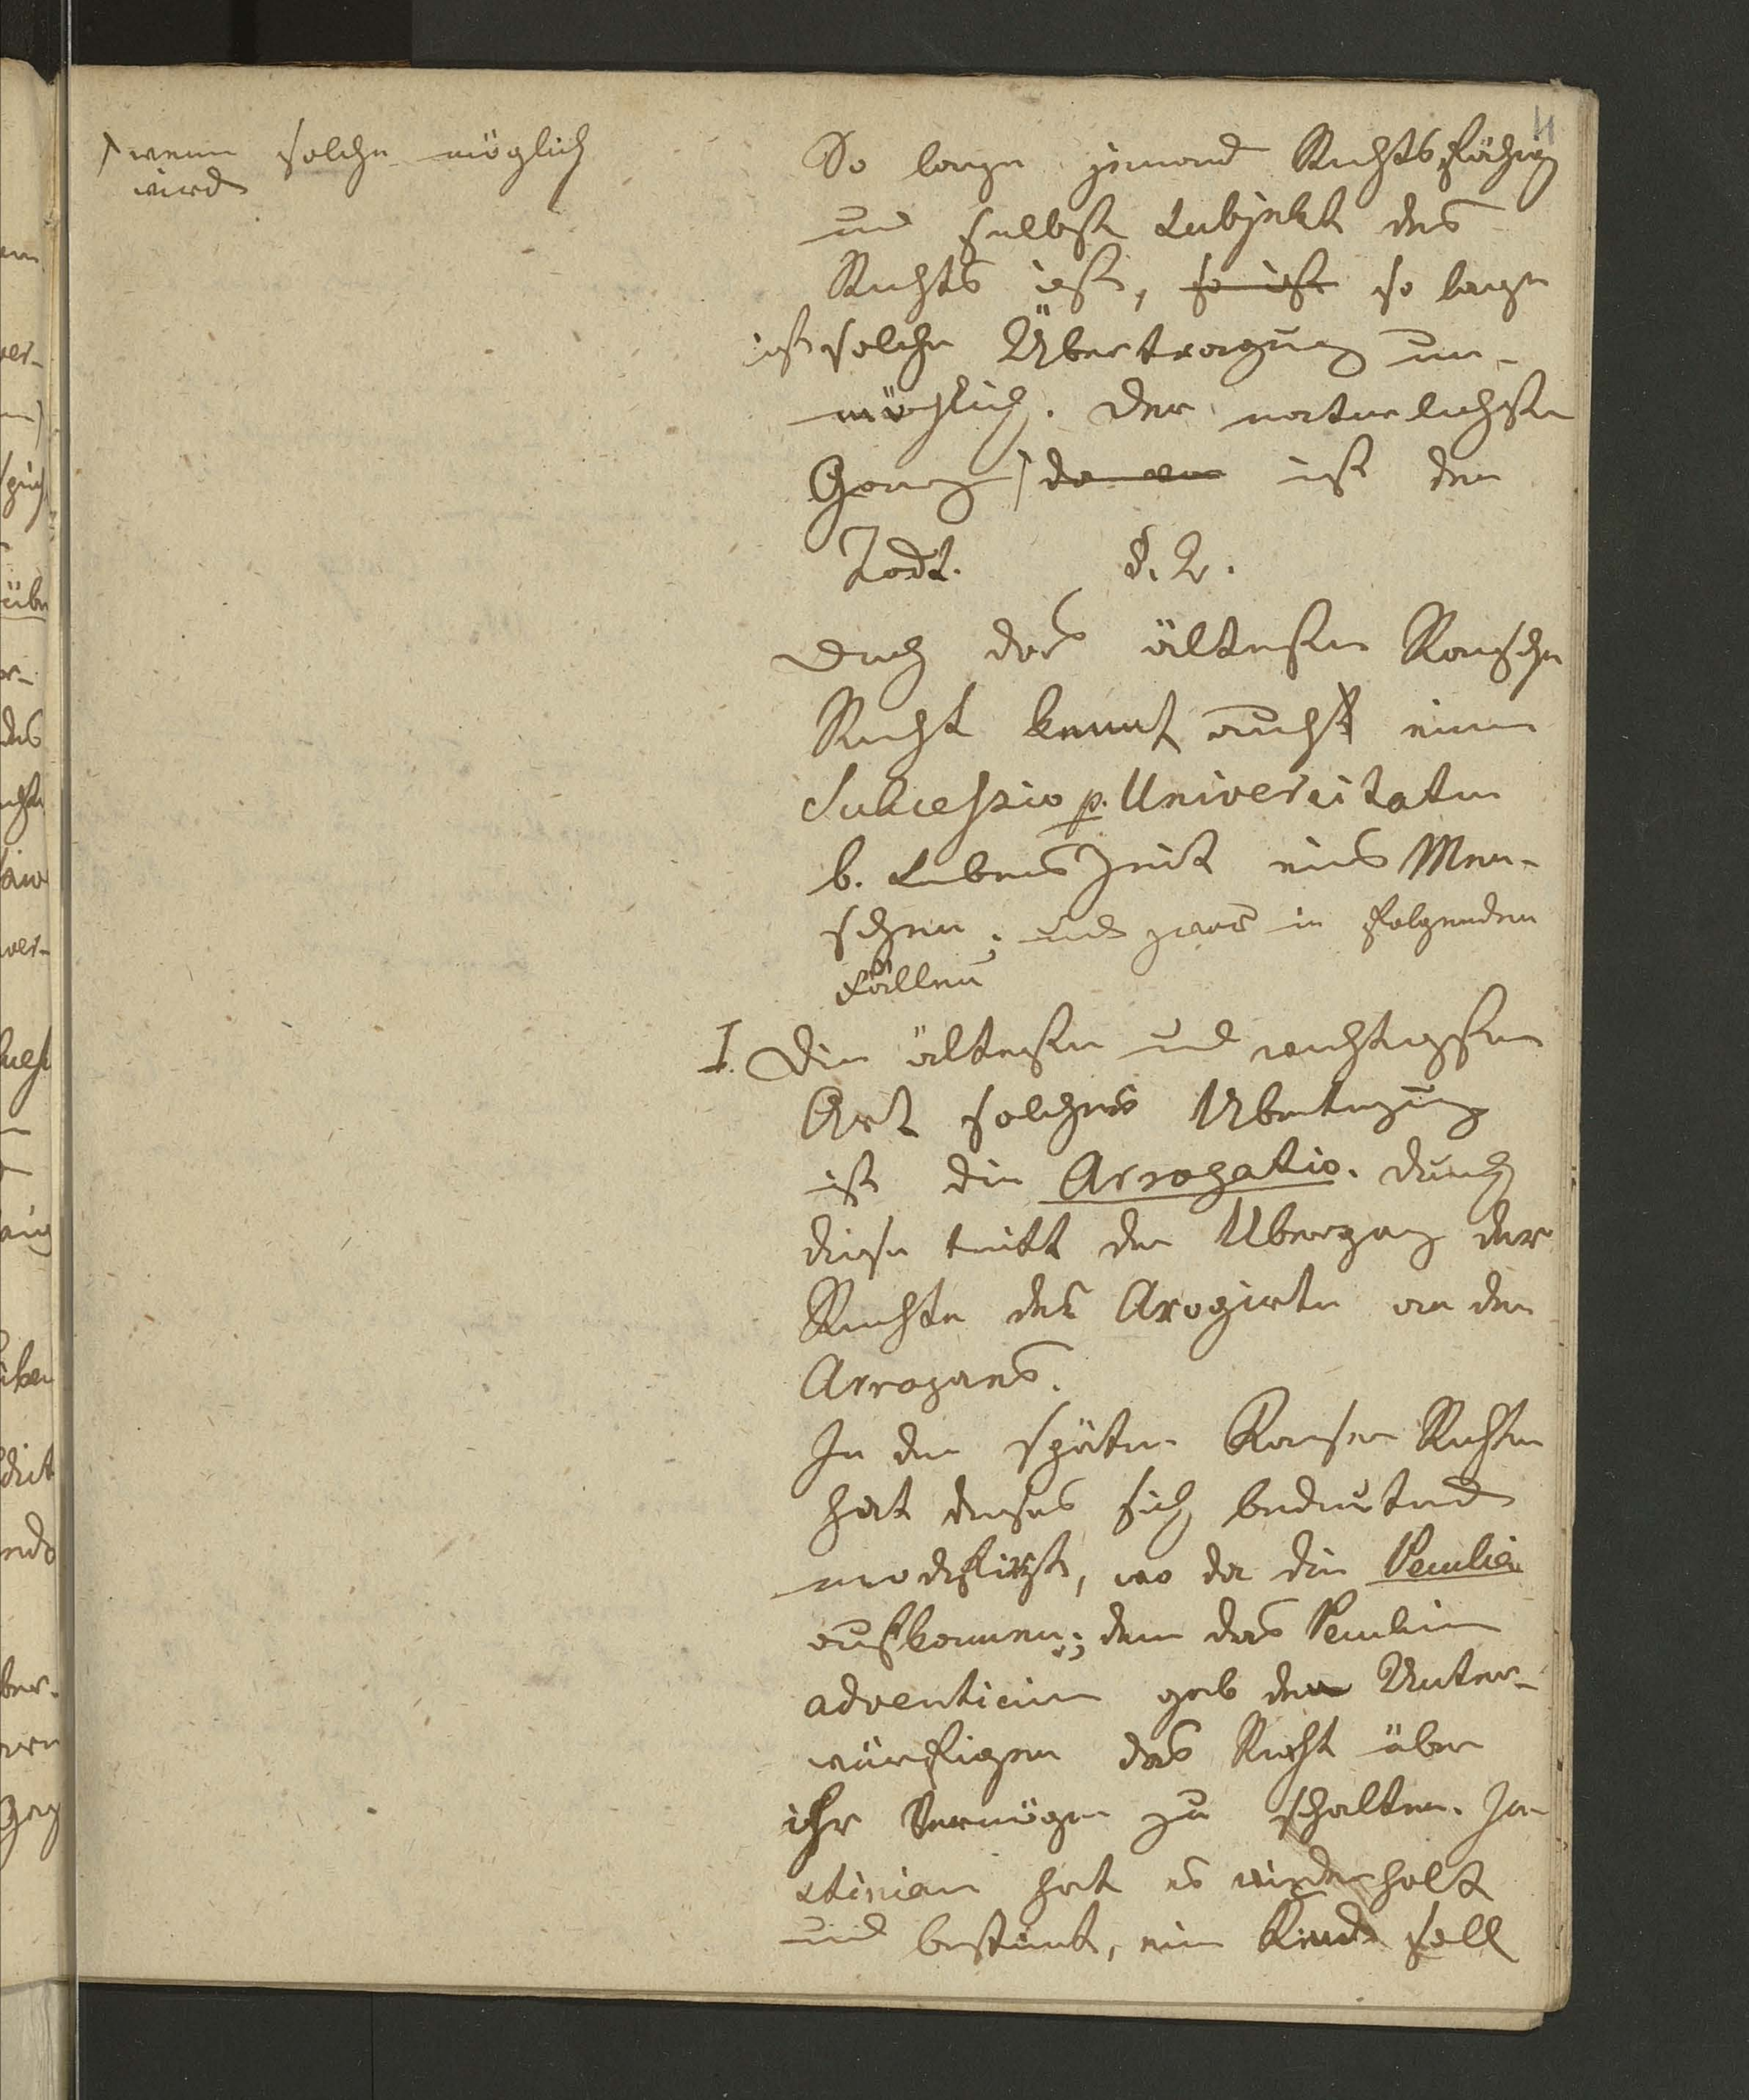 ) wenn solche möglich
wird
11
So lange jemand Rechtsfähig
und selbst Subjekt des
Rechts ist, so ist so lange
ist solche Übertragung un-
möglich. Der naturlichste
Gang ) ist der
Todt. §. 2.
Doch das älteste
Recht kennt auch eine
Sukcessio p. Universitatem
b. Lebens Zeit eines Men-
schen; und zwar in folgenden
Fällen
I. Die älteste und wichtigste
Art solcher Ubertragung
ist die Arrogatio. Durch
diese tritt der Ubergang der
Rechte des Arogirten an den
Arrogans.
In den spätern Rechten
hat dieses sich bedeutend
modifizirt, wo da die Peculien
aufkommen; denn das Peculium
adventicium gab den Unter-
würfigen das Recht über
ihr Vermögen zu schalten. Ju-
stinian hat es wiederholt
und bestimt, ein Kind soll